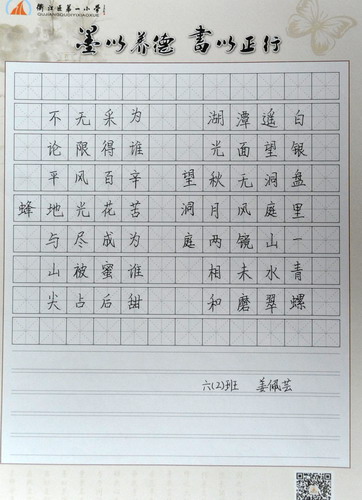 衢江区第一小学
QUJIANGQUDIYIXIAOXUE
墨以养德 书以正行
蜂
不论平地与尖山
无限风光尽被占
采得百花成蜜后
为谁辛苦为谁甜
望洞庭
湖光秋月两相和
潭面无风镜未磨
遥望洞庭山水翠
白银盘里一青螺
六(2)班 姜佩芸